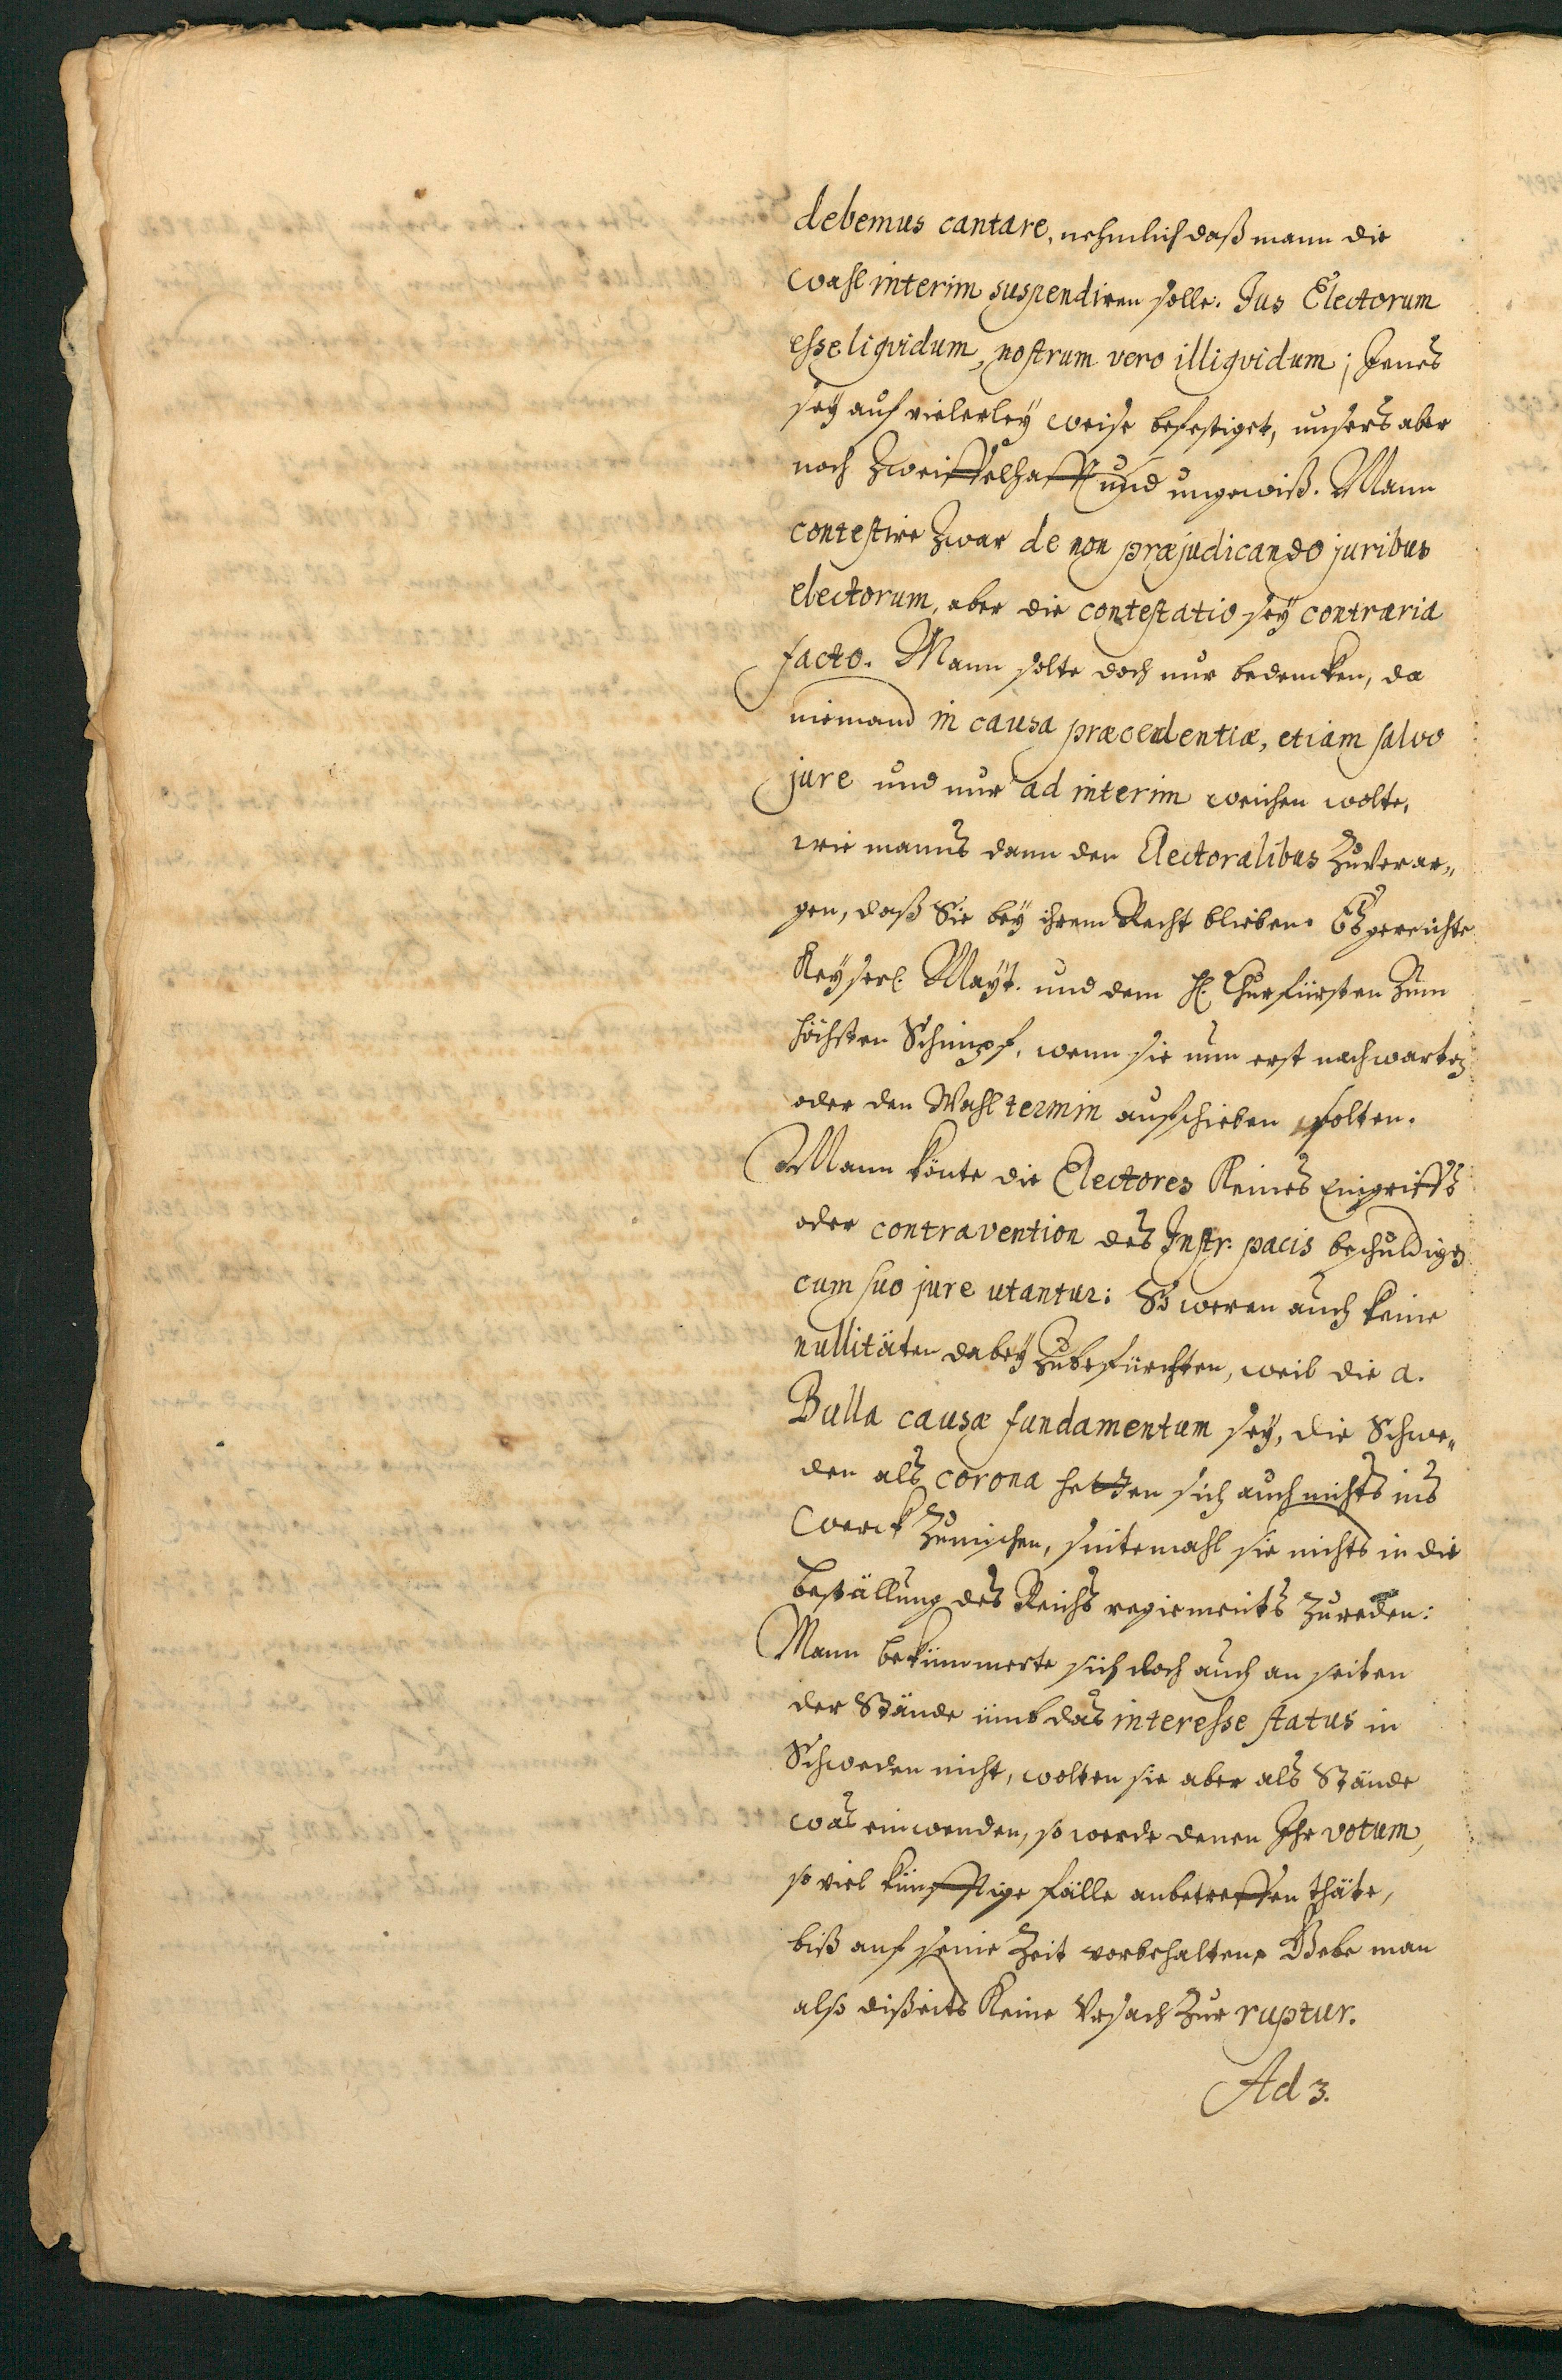 debemus cantare, nehmlich daß mann die
Wahl interim suspendiren solle. Jus Electorum
esse liqvidum, nostrum vero illiqvidum; Jenes
sey auf vielerley weise befestiget, unsers aber
noch Zweiffelhafft und ungewiß. Mann
contestire Zwar de non præjudicando juribus
electorum, aber die contestatio sey contraria
facto. Mann solte doch nur bedencken, da
niemand in causa præcedentiæ, etiam salvo
jure und nur ad interim weichen wolte,
wie manns dann den Electoralibus Zuverar„
gen, daß Sie bey ihrem Recht blieben. Es gereichte
Keyserl. Mayt. und dem H. Churfürsten Zum
höchsten Schimpf, wenn sie nun erst nachwarten
oder den Wahl termin aufschieben solten.
Mann könte die Electores Keines Eingriffs
oder contravention des Instr. pacis beschuldigen
cum suo jure utantur: So weren auch keine
nullitäten dabey Zubefürchten, weil die a.
Bulla causæ fundamentum sey, die Schwe„
den als corona hetten sich auch nichts ins
Werck Zumischen, sintemahl sie nichts in die
beställung des Reichs regiements Zureden:
Mann bekümmerte sich doch auch an seiten
der Stände umb das interesse status in
Schweden nicht, wolten sie aber als Stände
was einwenden, so werde denen Ihr votum,
so viel künfftige fälle anbetreffen thäte,
biß auf seine Zeit vorbehalten. Gebe man
also dißeits Keine Ursach Zur ruptur.
Ad 3.